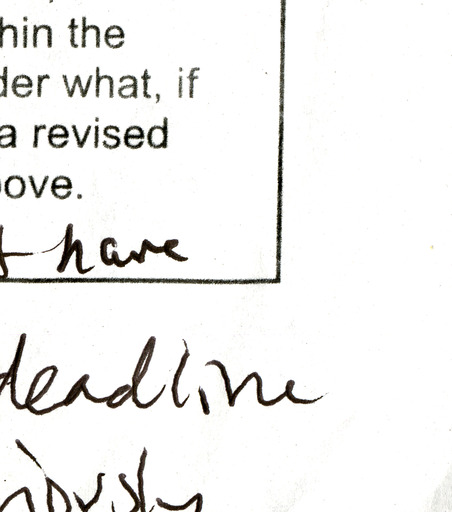 hin the
der what, if
a revised
ove.
t have
deadline
iously